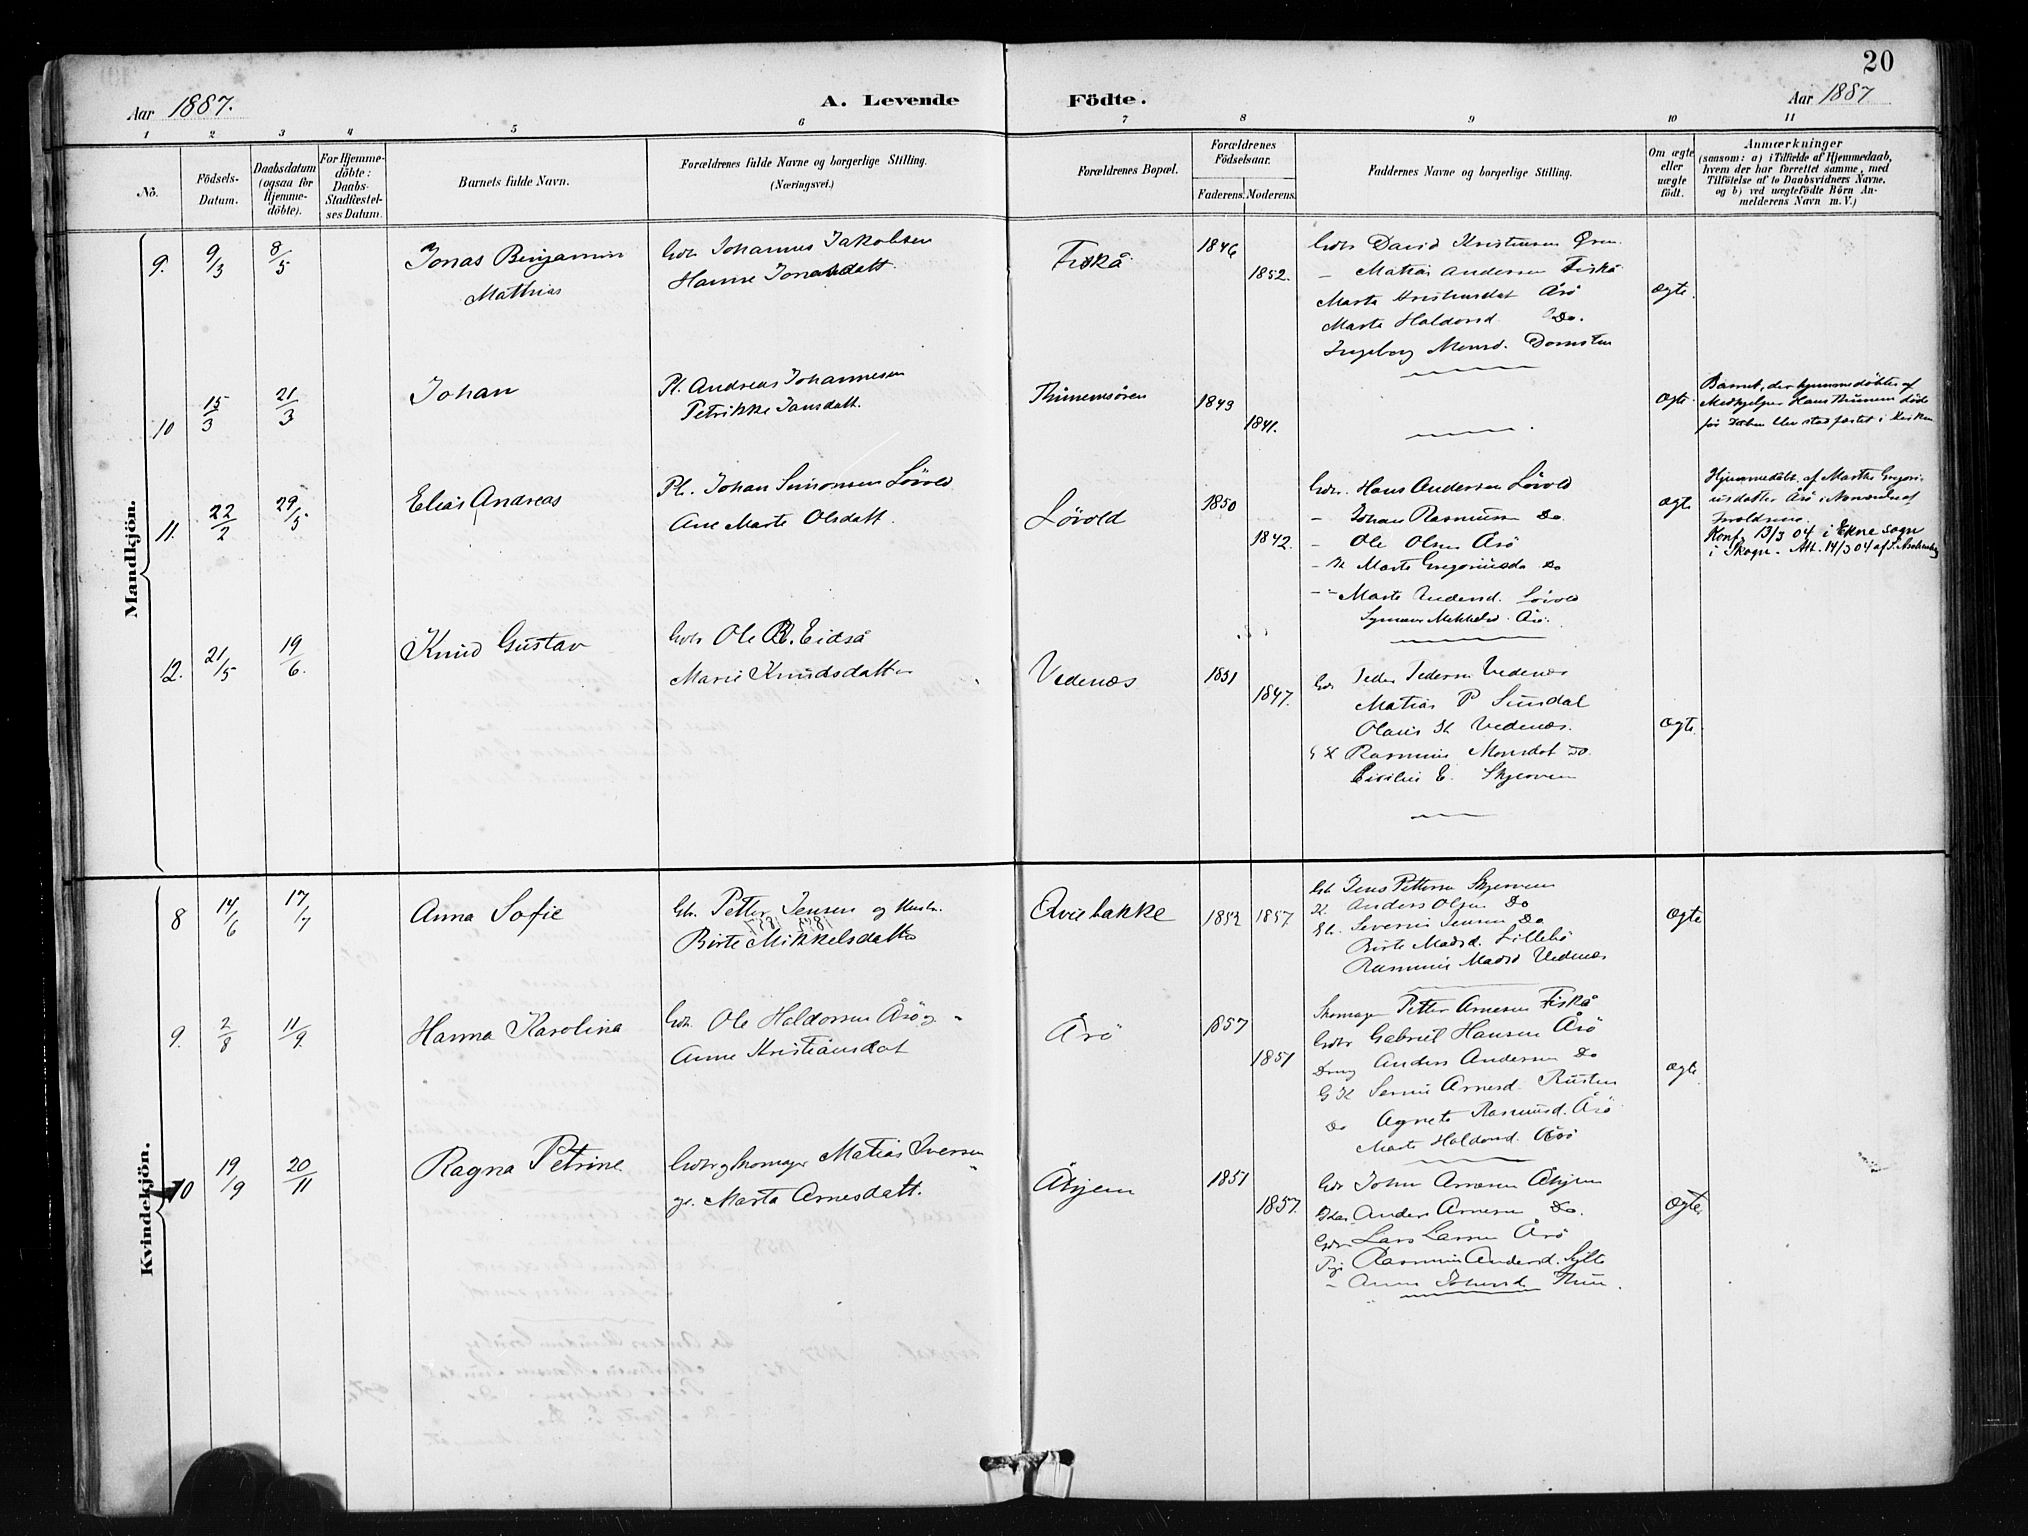 20
Aar 1887.
A. Levende Födte.
Aar 1887
1 2 3 4 5 6 7 8 9 10 11
No.
Födsels-Datum.
Daabsdatum (ogsaa for Hjemme-döbte).
For Hjemme-döbte: Daabs-Stadfæstel-ses Datum.
Barnets fulde Navn.
Forældrenes fulde Navne og borgerlige Stilling.
(Næringsvei.)
Forældrenes Bopæl.
Forældrenes Födselsaar.
Faderens. Moderens.
Faddernes Navne og borgerlige Stilling.
Om ægte eller uægte födt.
Anmærkninger
(saasom: a) i Tilfælde af Hjemmedaab,
hvem der har forrettet samme, med
Tilföielse af to Daabsvidners Navne,
og b) ved uægtefödte Börn An-
melderens Navn m. V.)
Mandkjön.
9. 9/3 8/5 Jonas Benjamin
Mathias
Gdr Johannes Jakobsen
Hanne Jonasdatt.
Fiskå 1846 1852.
Gdr David Kristensen
– Matias Andersen Fiskå
Marte Årö
Marte Haldorsd. Do.
Ingeborg Monsd.
Ægte.
10 15/3 21/3 Johan
Pl. Andreas Johannesen
Petrikke Jansdatt.
1849 1841.
Ægte.
Barnet, der hjemmedöbtes af
Medhjelper Hans döde
för Daaben blev stadfæstet i Kirken
11. 22/2 29/5 Elias Andreas
Pl. Johan Simonsen Lövold
Ane Marte Olsdatt.
Lövold 1850 1842.
Gdr. Hans Andersen Lövold
– Johan Rasmussen Do.
– Ole Olsen Årö
– K Marte Do
– – Marte Andersd. Lövold
Årö.
Ægte
Hjemmedöbt af Marthe
Årö i Nærværelse af
Forældrene.
Konf. 13/3 04 i Ekne sogn
i Skogn. Att. 14/3 04 af
12. 21/5 19/6. Knud Gustav
Gdr Ole R. Eidså
Marie Knudsdatter
Vedenæs 1851 1847.
Gdr Peder Pedersen Vedenæs
Matias P Sundal
K Vedenæs.
G K Rasmine Monsdat Do.
E.
Ægte.
Kvindekjön.
8 14/6 17/7 Anna Sofie
Gbr. Petter Jensen og Hustr.
Birte Mikkelsdatter
Qvibakke 1852 1857.
Jens Pettersen
K. Anders Olsen Do
Severin Jensen Do
Birte Madsd. Lillebö
Rasmine Madsd Vedenæs
Ægte
9. 2/8 11/9. Hanna Karolina
Gdr. Ole Haldorsen Årö og
Anne Kristiansdat
Årö 1857 1851
Skomager Petter Arnesen Fiskå
Gdr Gabriel Hansen Årö
Dreng Anders Andersen Do
G K Arnesd. Rusten
Do Agnete Rasmusd. Årö
Marte Haldorsd. Årö
Ægte.
10 19/9 20/11 Ragna Petrine
Gdr og Skomager Matias Iversen
og Marta Arnesdatt.
Åhjem 1851 1857.
Gdr John Arnesen Åhjem
Anders Arnesen Do.
Gdr Lars Larsen Årö
Pige Rasmine Andersd. Sylte
– Anne
Ægte